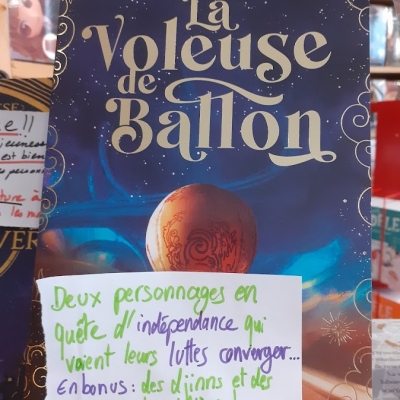 La
Voleuse
de
Ballon
Deux personnages en
quête d'indépendance qui
voient leurs luttes converger...
En bonus : des djinns et des
e!!
jeunesse
est bien
VER